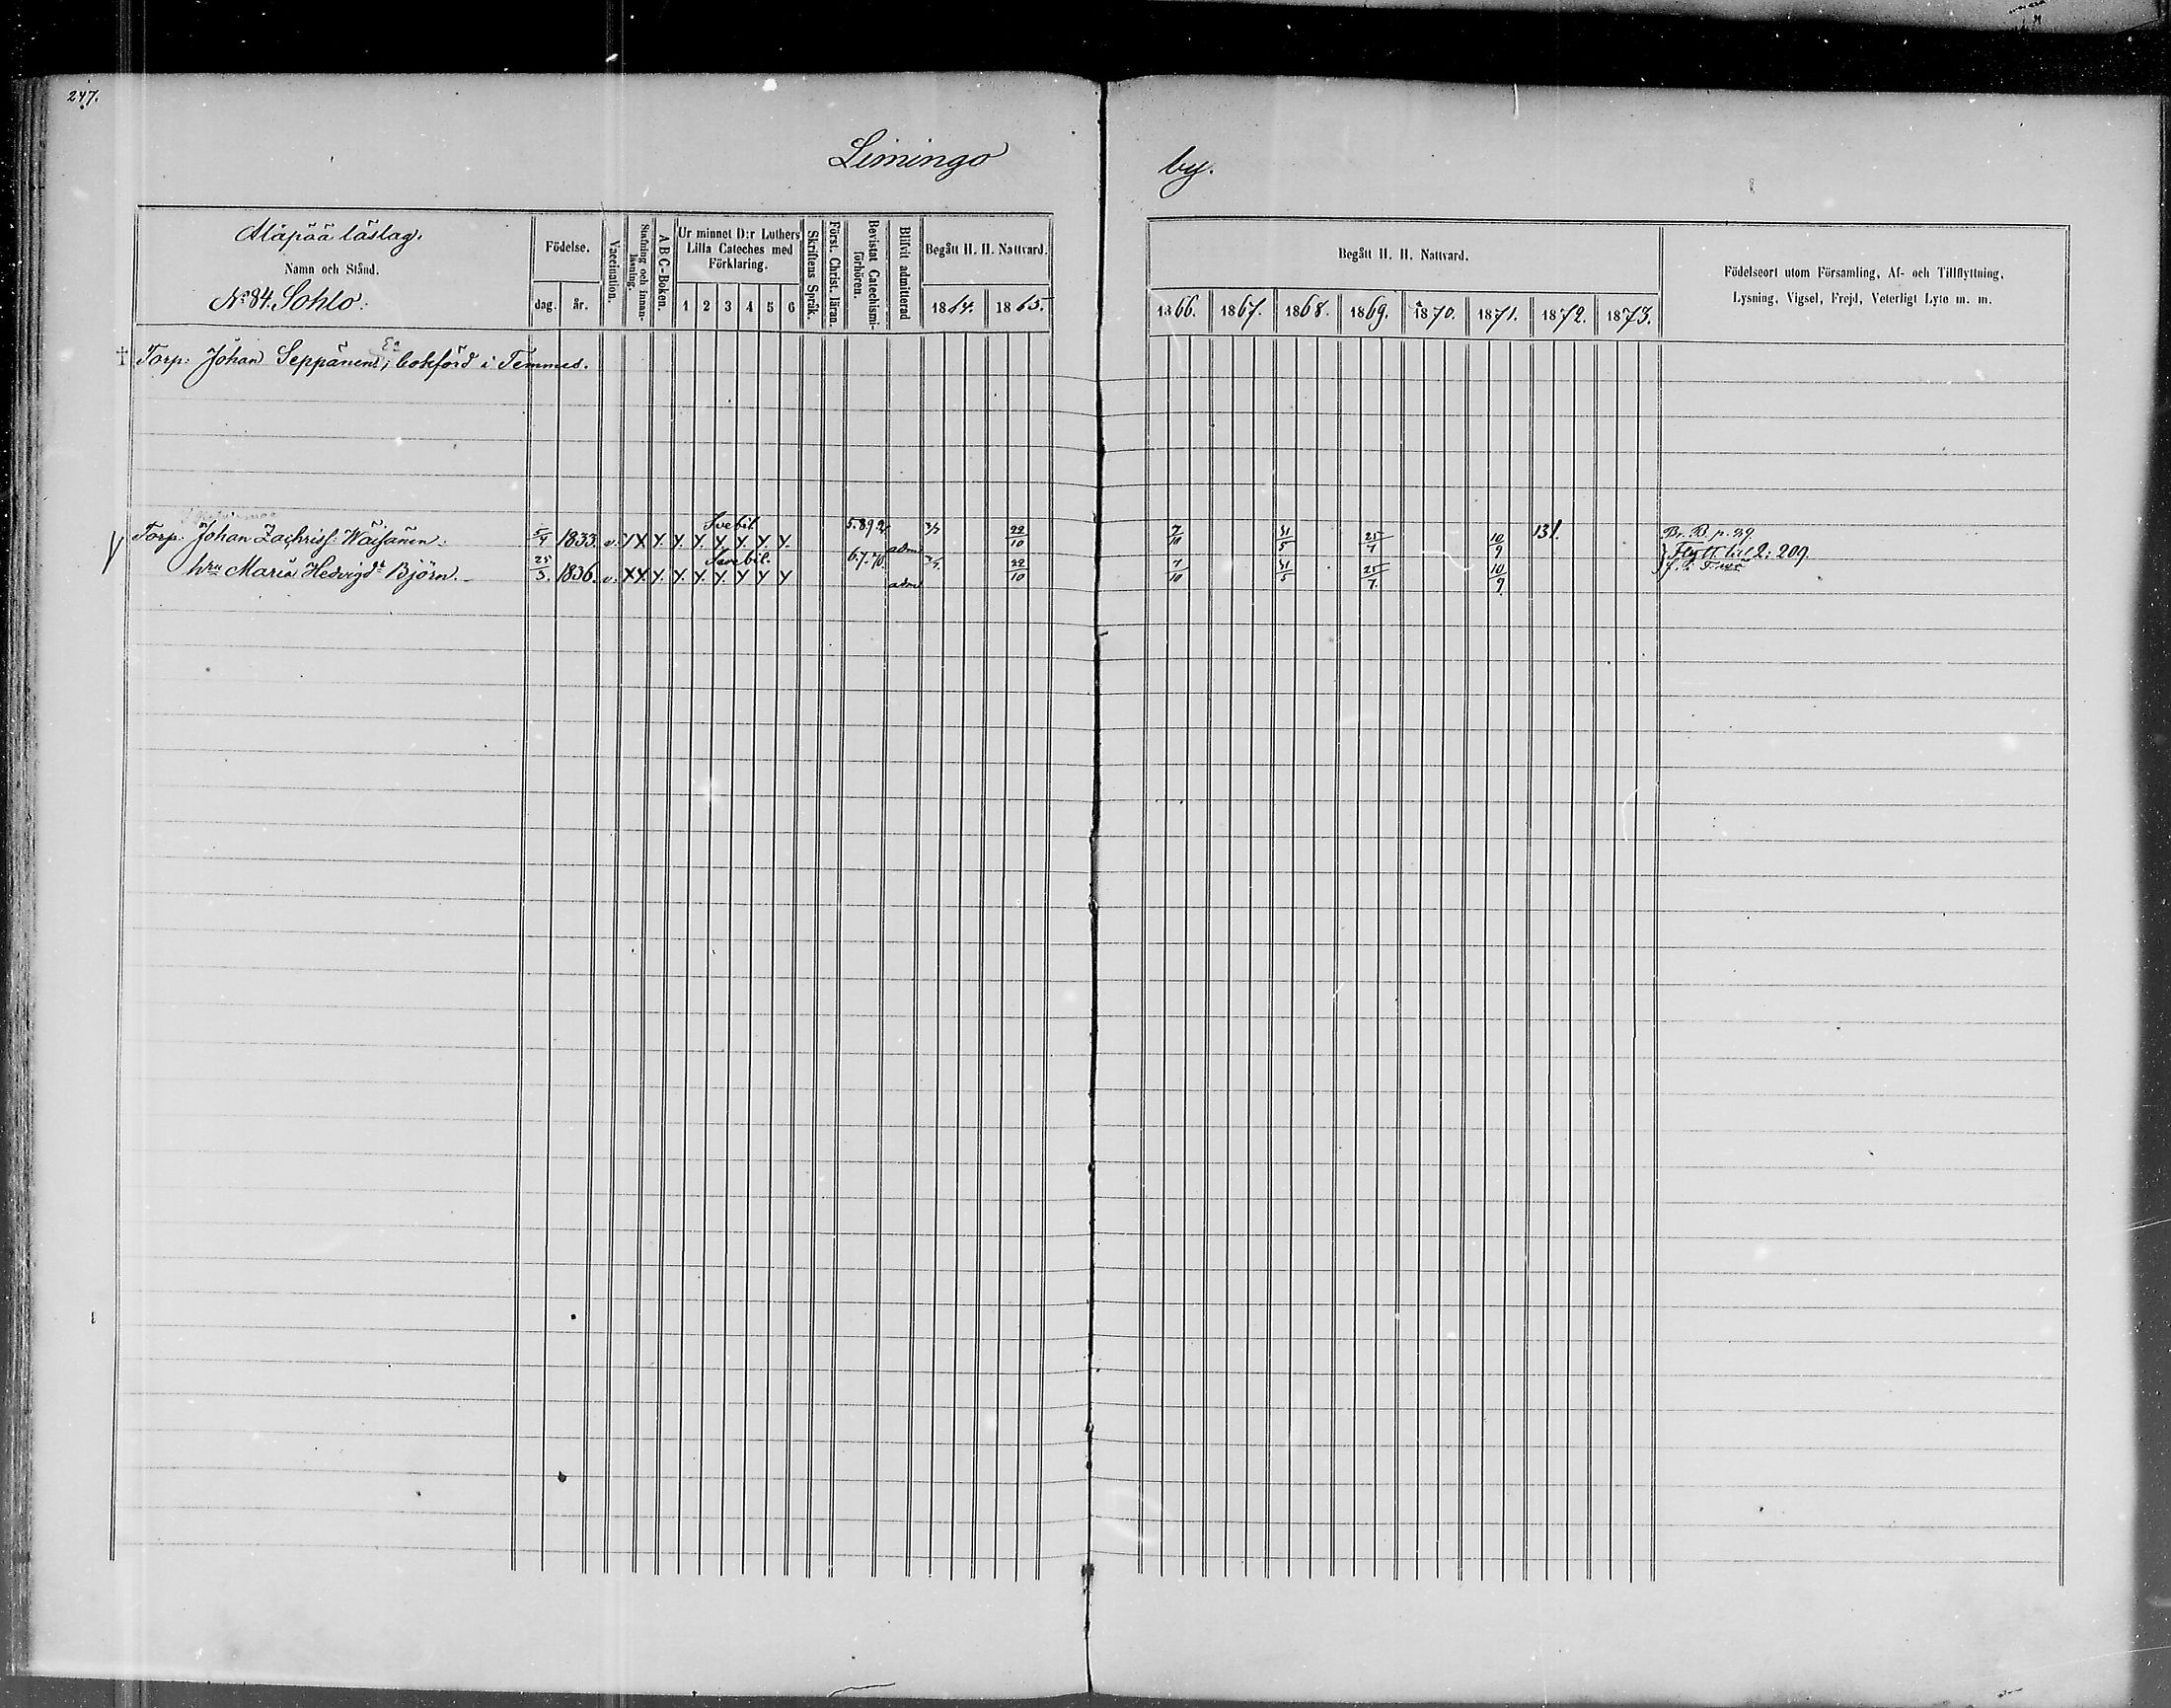 247.
Limingo by.
Alapää läslag.
Namn och Stånd.
No 84. Sohlo.
Födelse.
dag. år.
Vaccination.
Stafning och innanläsning.
A B C-Boken.
Ur minnet D:r Luthers Lilla Cateches med Förklaring.
1 2 3 4 5 6
Skriftens Språk.
Först. Christ. läran.
Bevistat Catechismiförhören.
Blifvit admitterad
Begått H. H. Nattvard.
1864. 1865.
Begått H. H. Nattvard.
1866. 1867. 1868. 1869. 1870. 1871. 1872. 1873.
Födelseort utom Församling, Af- och Tillflyttning,
Lysning, Vigsel, Frejd, Veterligt Lyte m. m.
† Torp. Johan Seppänen, bokförd i Temmes.
Svebil.
Torp. Johan Zachriss. Wäisänen. 5/4 1833. v. 5.89 adm 22/10 7/10 31/5 25/7 10/9 131. Br. B. p. 39.
Svebil.
hru Maria Hedvig dr Björn. 25/3. 1836. v. 67.70. adm 22/10 7/10 31/5 25/7. 10/9. Flytt till 2: 209.